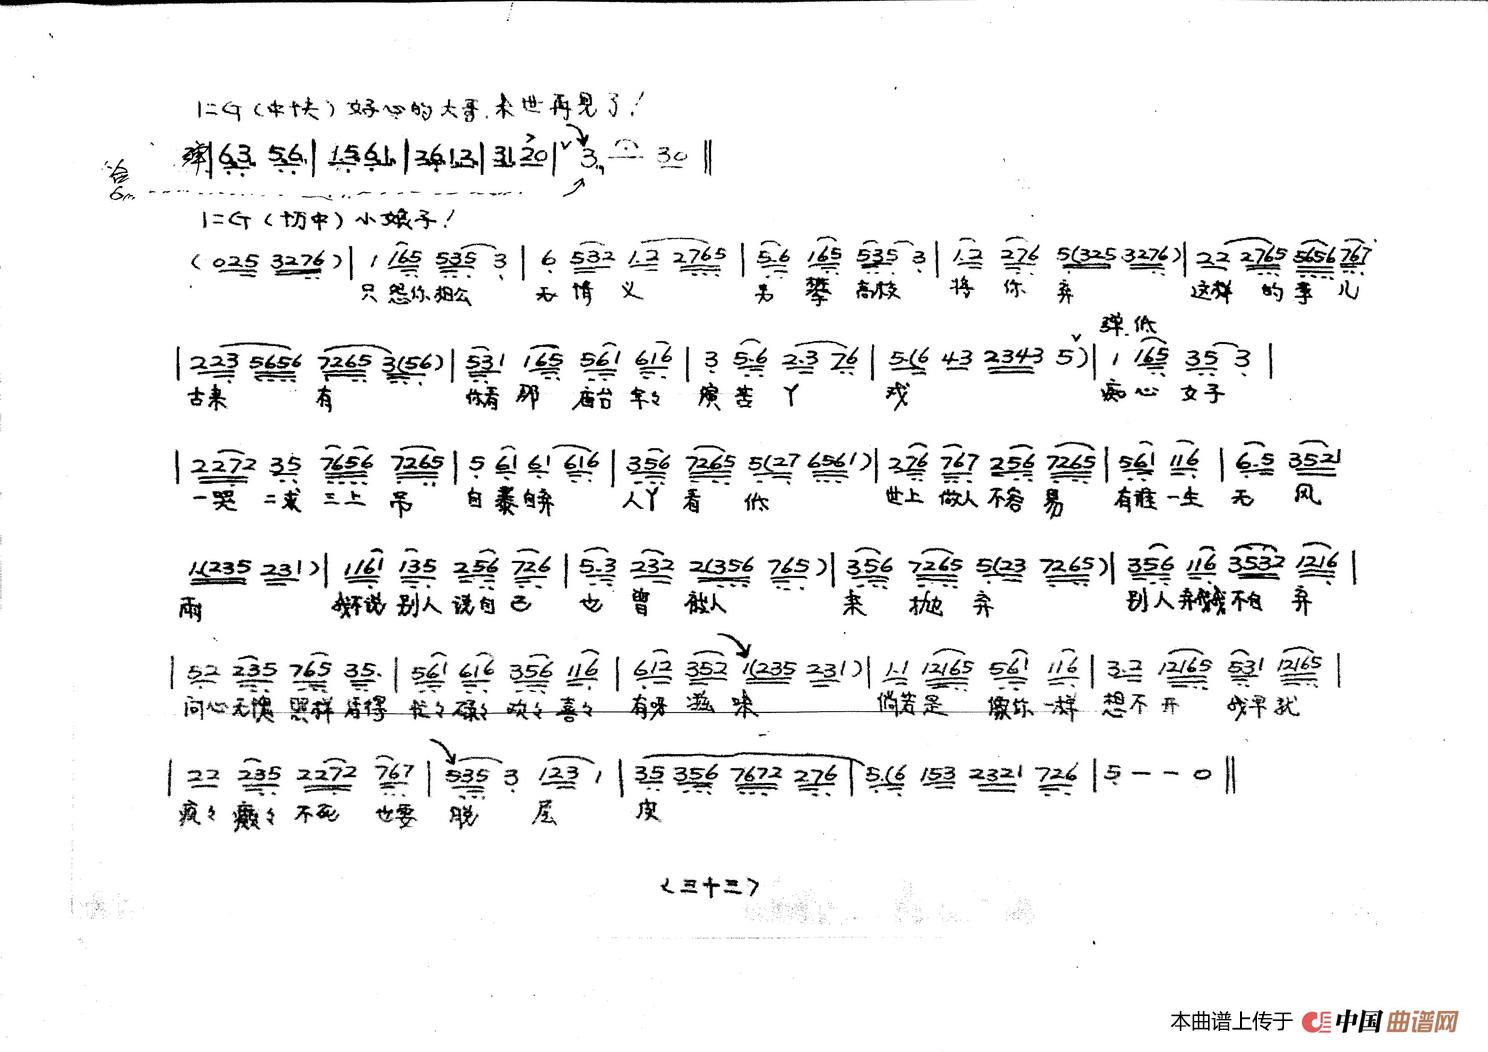 1=G（中快）好心的大哥.来世再见了！
弹|63 56|1561|2612|31 20|˅3 — 30‖
合
1=G（切中）小娘子！
(025 3276)|1 165 535 3|6 532 1.2 2765|5.6 165 535 3|1.2 276 5(325 3276)|22 2765 5656 767
只怨你相公 无情义 另攀高枝 将你弃 这样的事儿
弹.低
|223 5656 7265 3(56)|531 165 561 616|3 5.6 2.3 76|5.(6 43 2343 5)|1 165 35 3|
古来有 你看那 台 年々演苦丫戏 痴心女子
|2272 35 7656 7265|5 61 61 616|356 7265 5(27 6561)|276 767 256 7265|561 116|6.5 3521
一哭二求三上吊 自暴自弃 人丫看低 世上做人不容易 有谁一生无风
1.(235 231)|1161 135 256 726|5.3 232 2(356 765)|356 7265 5(23 7265)|356 116 3532 1216|
雨 我不说别人说自己 也曾被人来抛弃 别人弃我我不自弃
|52 235 765 35.|561 616 356 116|612 352 1(235 231)|1.1 12165 561 116|3.2 12165 531 12165|
问心无愧照样活得 忙々碌々欢々喜々 有呀滋味 倘若是像你一样想不开 我早就
|22 235 2272 767|535 3 123 1|35 356 7672 276|5.(6 153 2321 726|5 — — 0‖
疯々癫々不死也要脱层皮
〈三十三〉
本曲谱上传于 中国曲谱网